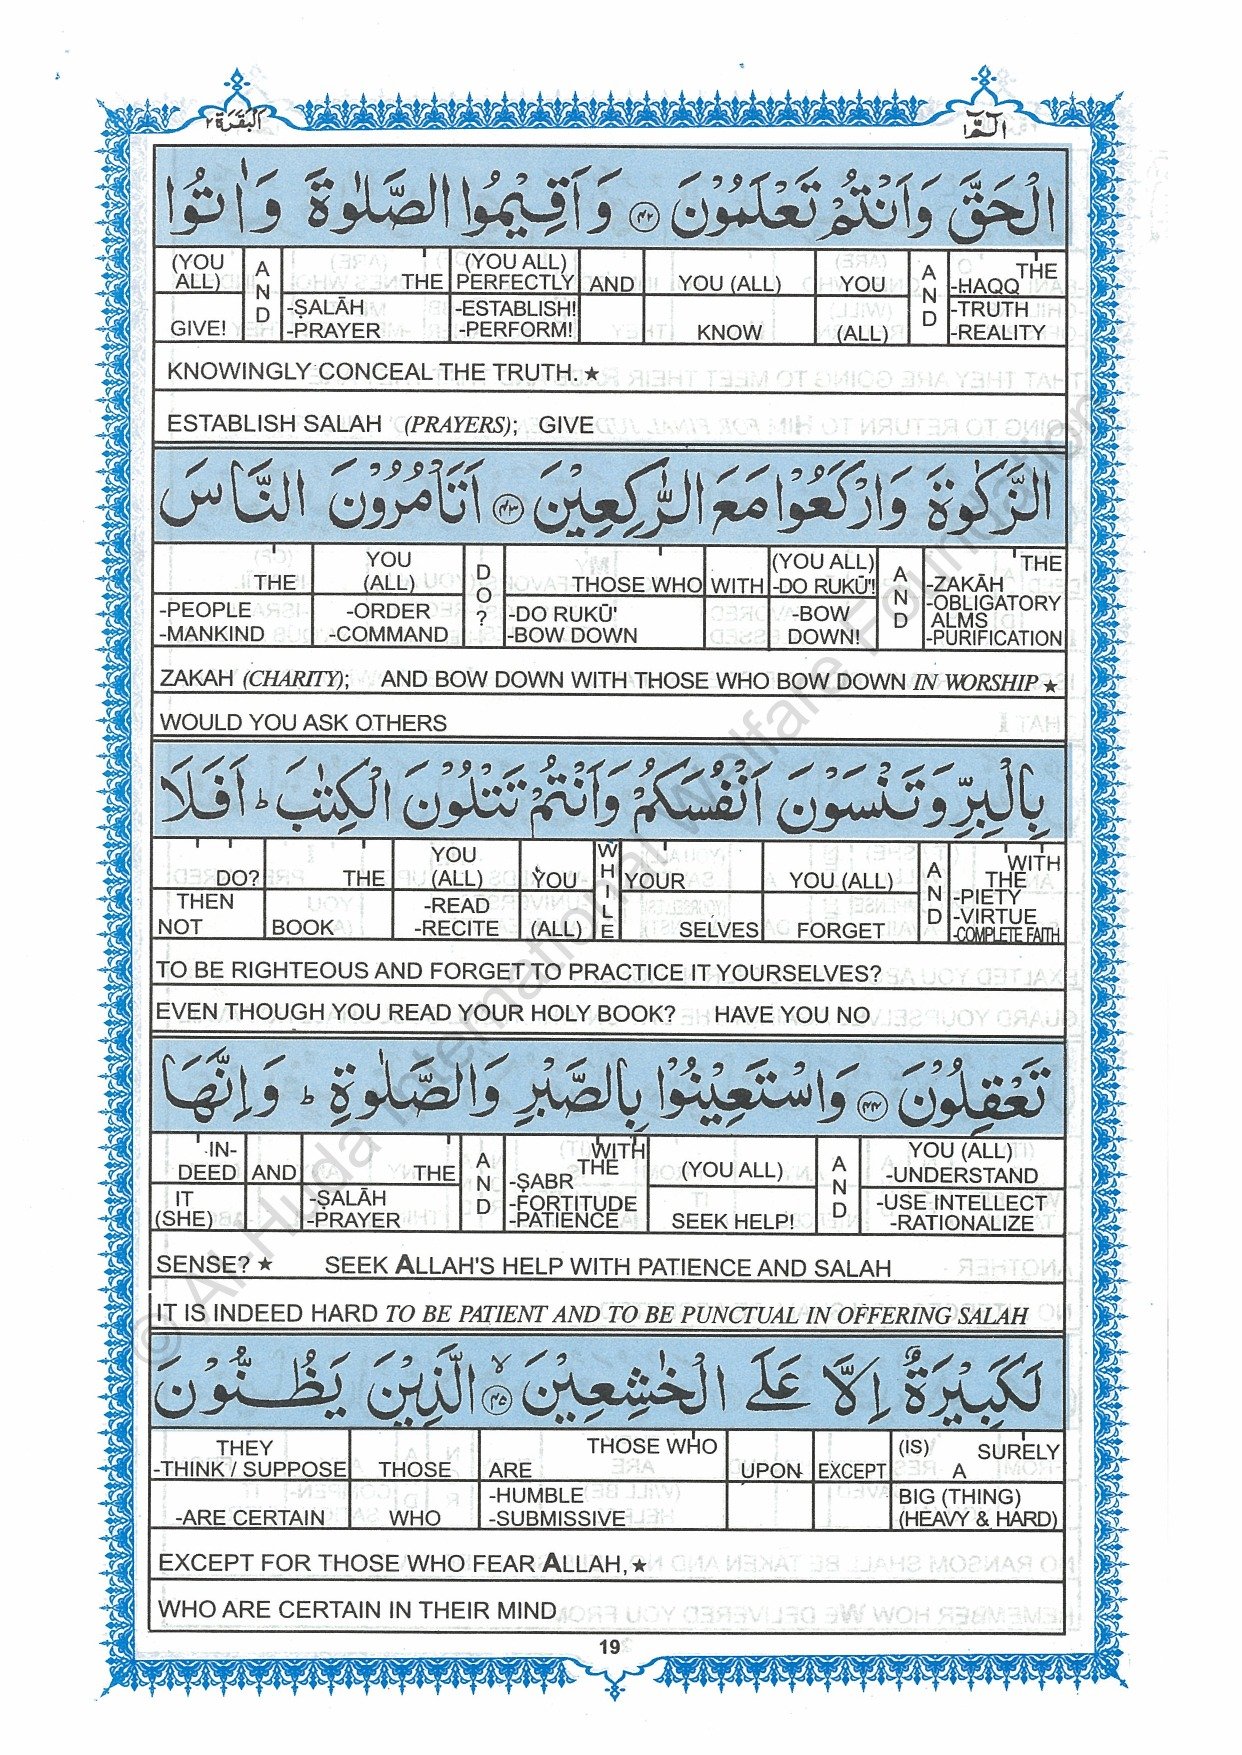 البقرة ٢
الٓمّٓ ١
الْحَقَّ وَاَنْتُمْ تَعْلَمُوْنَ ﴿٤٢﴾ وَاَقِيْمُوا الصَّلٰوةَ وَاٰتُوا
(YOU ALL) GIVE! | AND | THE -ṢALĀH -PRAYER | (YOU ALL) PERFECTLY -ESTABLISH! -PERFORM! | AND | YOU (ALL) KNOW | YOU (ALL) | AND | THE -HAQQ -TRUTH -REALITY
KNOWINGLY CONCEAL THE TRUTH. ★
ESTABLISH SALAH (PRAYERS); GIVE
الزَّكٰوةَ وَارْكَعُوْا مَعَ الرّٰكِعِيْنَ ﴿٤٣﴾ اَتَاْمُرُوْنَ النَّاسَ
THE -PEOPLE -MANKIND | YOU (ALL) -ORDER -COMMAND | DO? | THOSE WHO -DO RUKŪ' -BOW DOWN | WITH | (YOU ALL) -DO RUKŪ'! -BOW DOWN! | AND | THE -ZAKĀH -OBLIGATORY ALMS -PURIFICATION
ZAKAH (CHARITY); AND BOW DOWN WITH THOSE WHO BOW DOWN IN WORSHIP ★
WOULD YOU ASK OTHERS
بِالْبِرِّ وَتَنْسَوْنَ اَنْفُسَكُمْ وَاَنْتُمْ تَتْلُوْنَ الْكِتٰبَ ؕ اَفَلَا
DO? THEN NOT | THE BOOK | YOU (ALL) -READ -RECITE | YOU (ALL) | WHILE | YOUR SELVES | YOU (ALL) FORGET | AND | WITH THE -PIETY -VIRTUE -COMPLETE FAITH
TO BE RIGHTEOUS AND FORGET TO PRACTICE IT YOURSELVES?
EVEN THOUGH YOU READ YOUR HOLY BOOK? HAVE YOU NO
تَعْقِلُوْنَ ﴿٤٤﴾ وَاسْتَعِيْنُوْا بِالصَّبْرِ وَالصَّلٰوةِ ؕ وَاِنَّهَا
IN-DEED IT (SHE) | AND | THE -ṢALĀH -PRAYER | AND | WITH THE -ṢABR -FORTITUDE -PATIENCE | (YOU ALL) SEEK HELP! | AND | YOU (ALL) -UNDERSTAND -USE INTELLECT -RATIONALIZE
SENSE? ★ SEEK ALLAH'S HELP WITH PATIENCE AND SALAH
IT IS INDEED HARD TO BE PATIENT AND TO BE PUNCTUAL IN OFFERING SALAH
لَكَبِيْرَةٌ اِلَّا عَلَى الْخٰشِعِيْنَ ﴿٤٥﴾ الَّذِيْنَ يَظُنُّوْنَ
THEY -THINK / SUPPOSE -ARE CERTAIN | THOSE WHO | THOSE WHO ARE -HUMBLE -SUBMISSIVE | UPON | EXCEPT | (IS) SURELY A BIG (THING) (HEAVY & HARD)
EXCEPT FOR THOSE WHO FEAR ALLAH, ★
WHO ARE CERTAIN IN THEIR MIND
19
© Al-Huda International Welfare Foundation